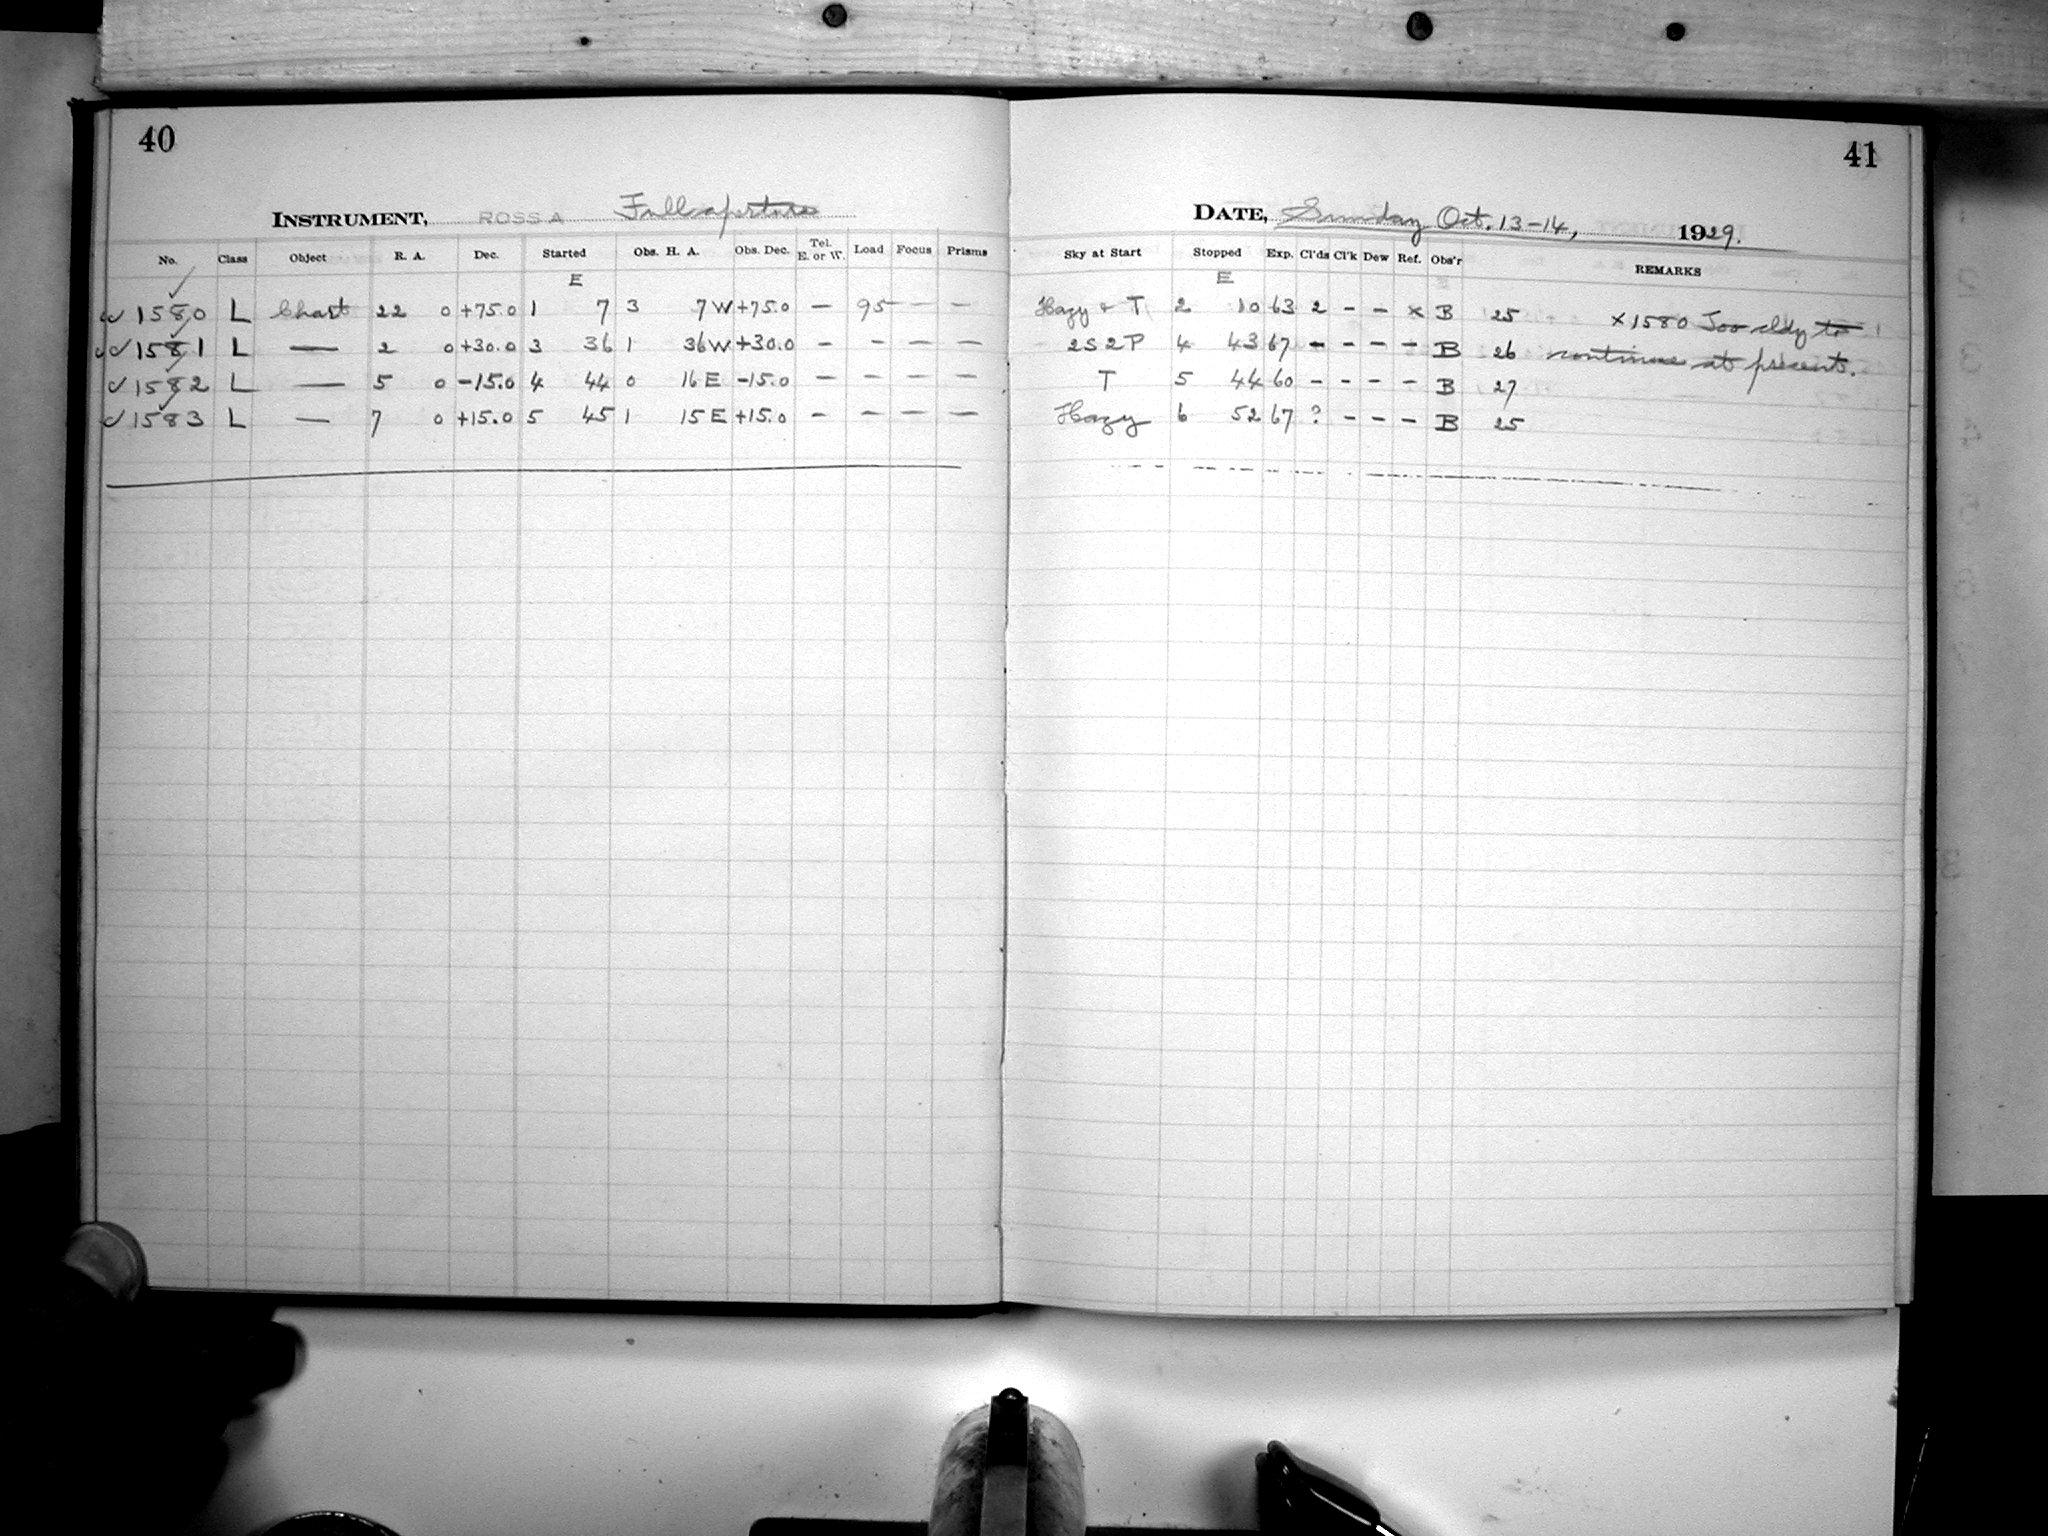 40
INSTRUMENT, ROSS A Full aperture
No. Class Object R. A. Dec. Started Obs. H. A. Obs. Dec. Tel. E. or W. Load Focus Prisms
E
✓ 1580 L Chart 22 0 +75.0 1 7 3 7 W +75.0 — 95 — —
✓ 1581 L — 2 0 +30.0 3 36 1 36 W +30.0 — — — —
✓ 1582 L — 5 0 -15.0 4 44 0 16 E -15.0 — — — —
✓ 1583 L — 7 0 +15.0 5 45 1 15 E +15.0 — — — —
41
DATE, Sunday Oct. 13-14, 1929.
Sky at Start Stopped Exp. Cl'ds Cl'k Dew Ref. Obs'r REMARKS
E
Hazy & T 2 10 63 2 - - x B 25 x1580 Too cldy to
2S 2P 4 43 67 - - - - B 26 continue at present.
T 5 44 60 - - - - B 27
Hazy 6 52 67 ? - - - B 25